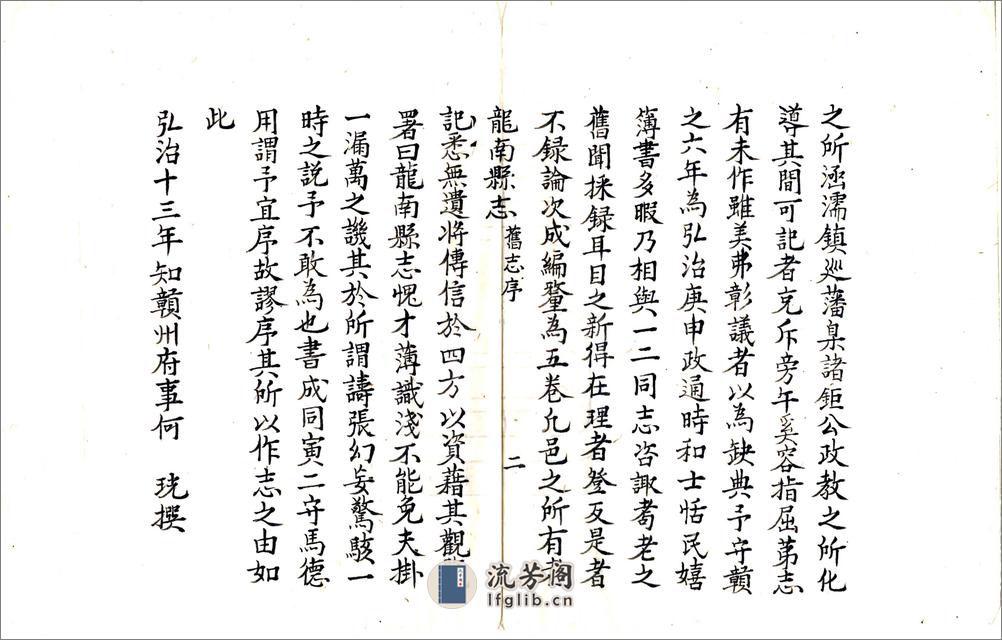 之所涵濡鎮廵藩臬諸鉅公政教之所化
導其間可記者充斥旁午奚容指屈苐志
有未作雖美弗彰議者以為缺典予守贛
之六年為弘治庚申政通時和士恬民嬉
簿書多暇乃相與一二同志咨諏耇老之
舊聞採録耳目之新得在理者登反是者
不録論次成編釐為五卷凢邑之所有
龍南縣志 舊志序 二
記悉無遺將傳信於四方以資藉其觀
署曰龍南縣志愧才薄識淺不能免夫掛
一漏萬之譏其於所謂譸張幻妄驚駭一
時之説予不敢為也書成同寅二守馬德
用謂予宜序故謬序其所以作志之由如
此
弘治十三年知贛州府事何 珖撰
流芳阁
lfglib.cn